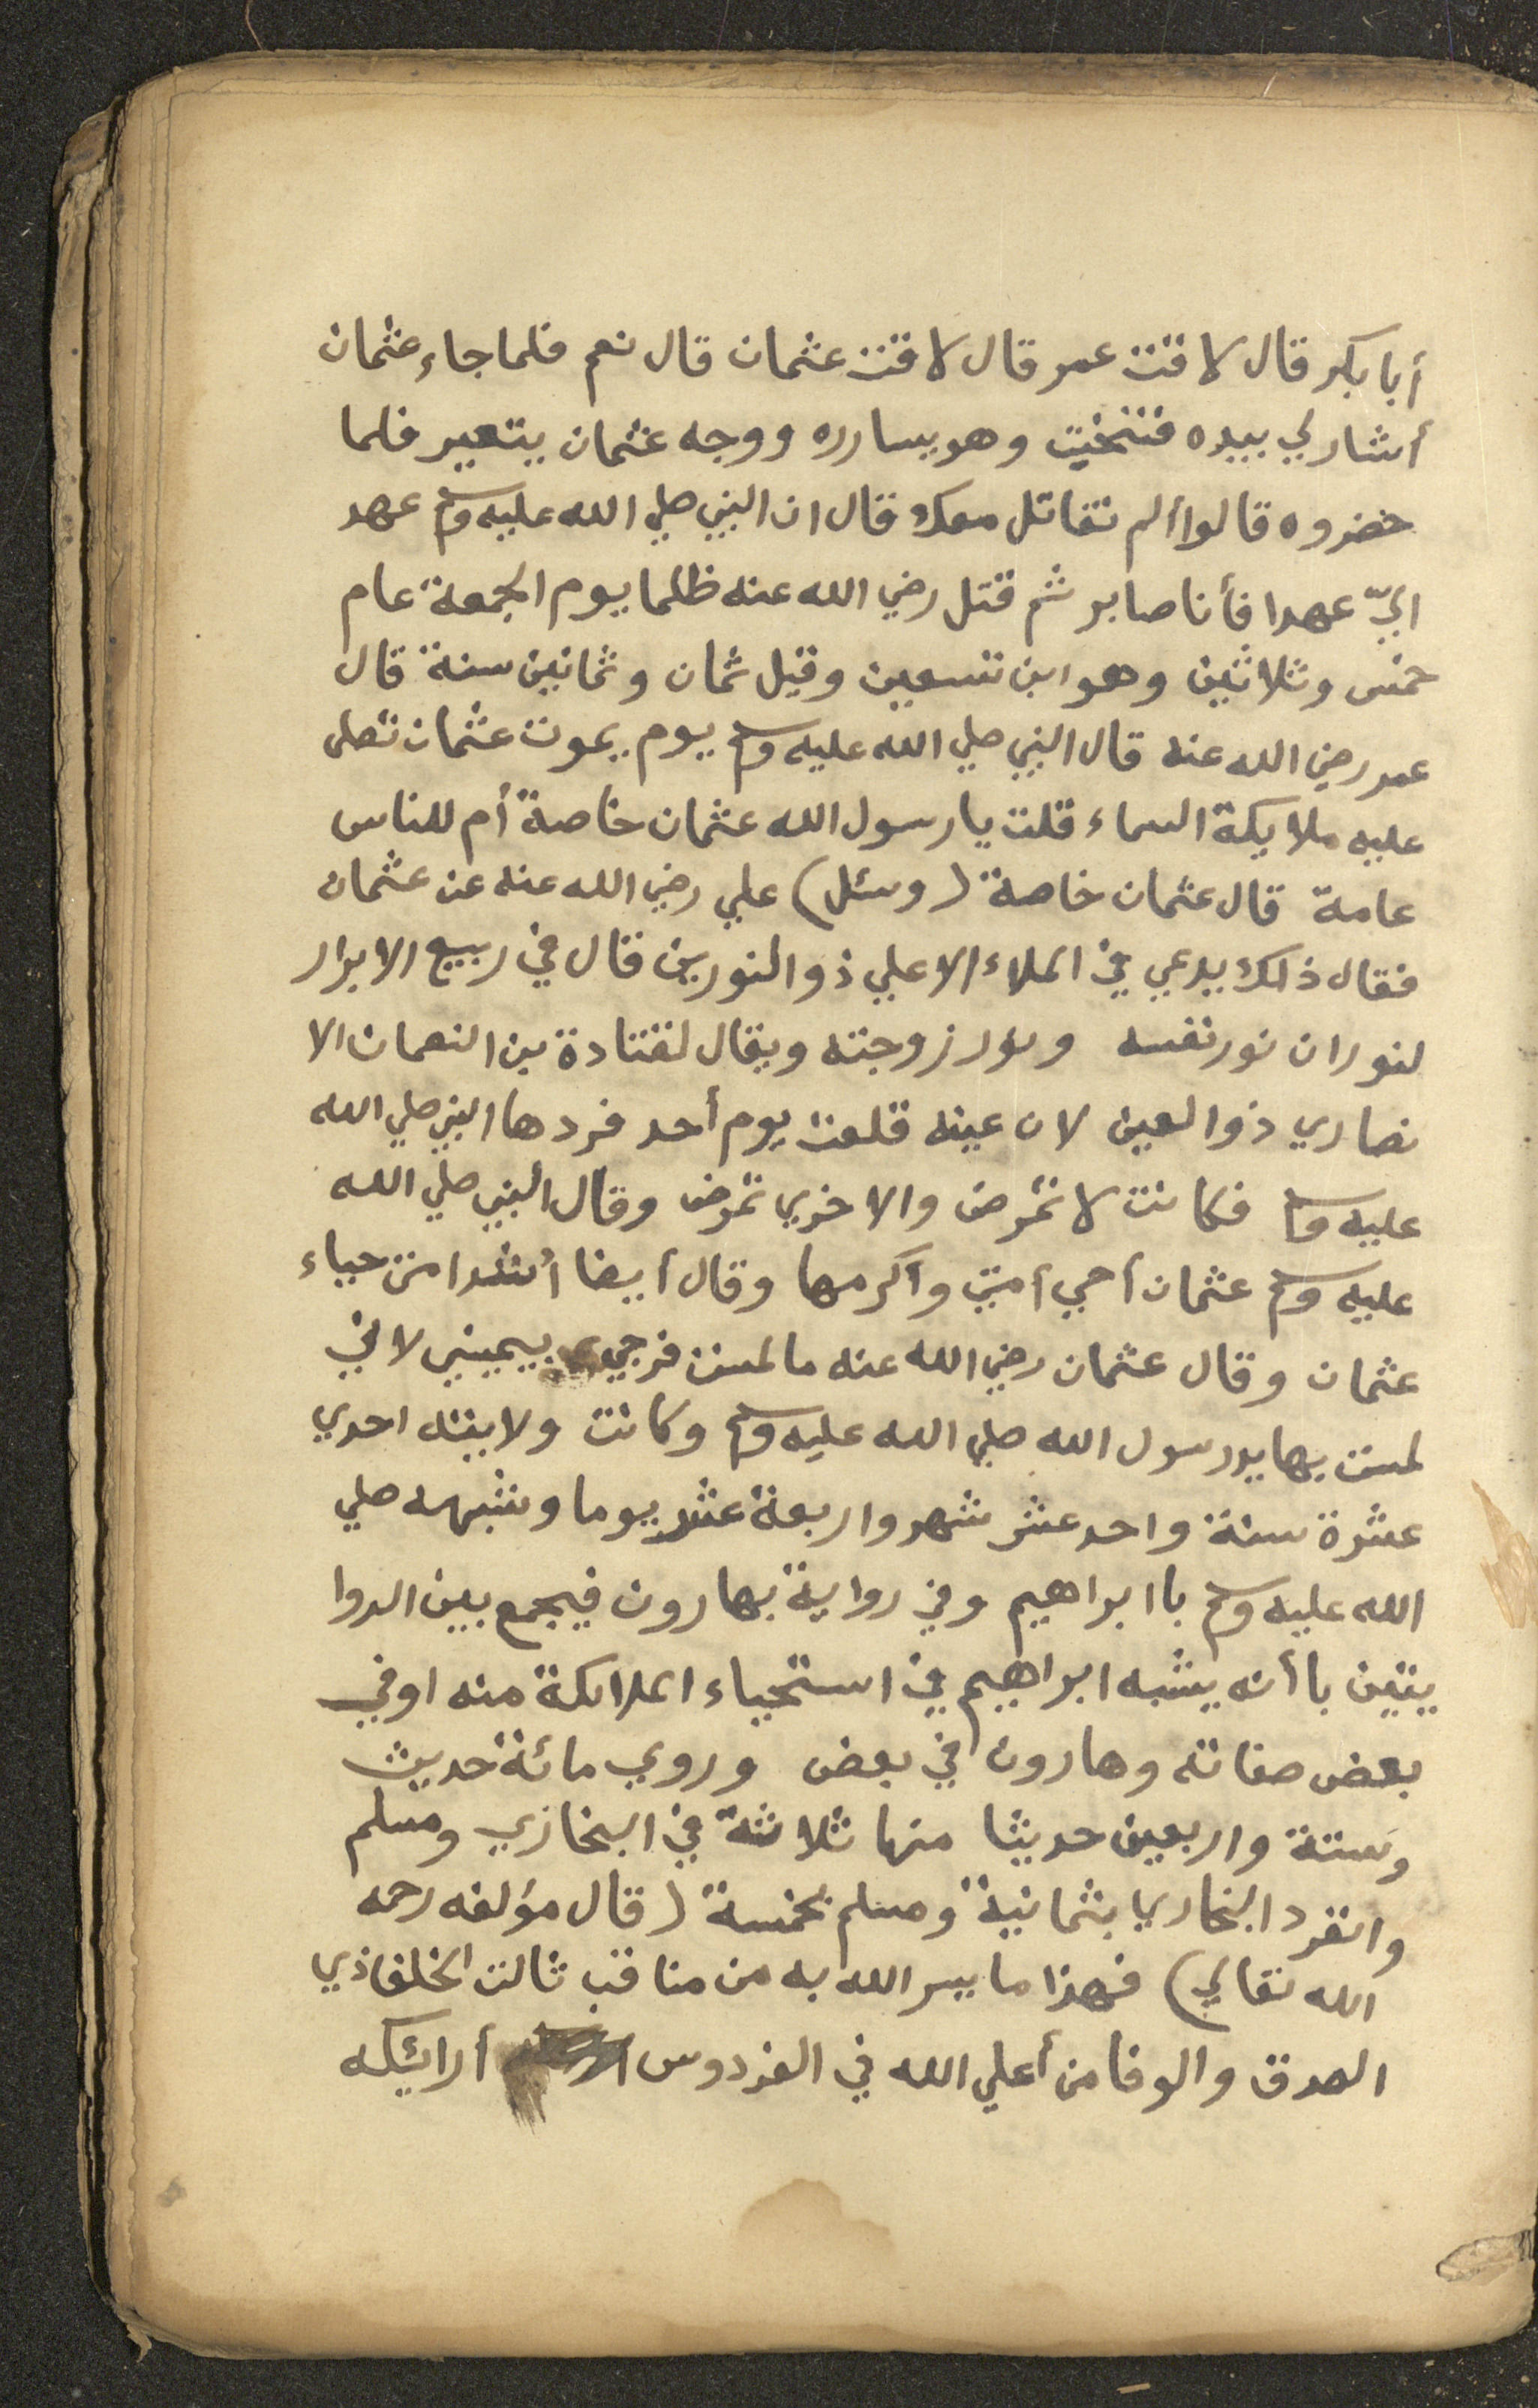 أبا بكر قال لا قنت عمر قال لا قنت عثمان قال نعم فلما جاء عثمان
أشار لي بيده فتنخيت وهو يسارره ووجه عثمان يتغير فلما
حضروه قالوا ألم نقاتل معك قال ان النبي صلي الله عليه وسلم عهد
اليّ عهدا فأنا صابر ثم قتل رضي الله عنه ظلما يوم الجمعة عام
خمس وثلاثين وهو ابن تسعين وقيل ثمان وثمانين سنة قال
عمر رضي الله عنه قال النبي صلي الله عليه وسلم يوم يموت عثمان تصلى
عليه ملايكة السماء قلت يا رسول الله عثمان خاصة أم للناس
عامة قال عثمان خاصة (وسئل) علي رضي الله عنه عن عثمان
فقال ذلك يدعي في الملاء الاعلي ذو النورين قال في ربيع الابرار
لنوران نور نفسه ونور زوجته ويقال لقتادة بن النعمان الا
نصاري ذو العين لان عينه قلعت يوم أحد فردها النبي صلي الله
عليه وسلم فكانت لا تمرض والاخري تمرض وقال النبي صلي الله
عليه وسلم عثمان أحي أمتي وأكرمها وقال أيضا أشد امتي حياء
عثمان وقال عثمان رضي الله عنه ما لمست فرجي بيميني لاني
لمست بها يد رسول الله صلي الله عليه وسلم وكانت ولايته احدي
عشرة سنة واحد عشر شهر واربعة عشر يوما وشبهه صلي
الله عليه وسلم با ابراهيم وفي رواية بهارون فيجمع بين الروا
يتين با أنه يشبه ابراهيم في استحياء الملائكة منه اوفي
بعض صفاته وهارون في بعض وروي مائة حديث
وستة واربعين حديثا منها ثلاثة في البخازي ومسلم
وانفرد البخاري بثمانية ومسلم بخمسة (قال مؤلفه رحمه
الله تعالي) فهذا ما يسر الله به من مناقب ثالث الخلفا ذي
الصدق والوفا من أعلي الله في الفردوس أرائيكه